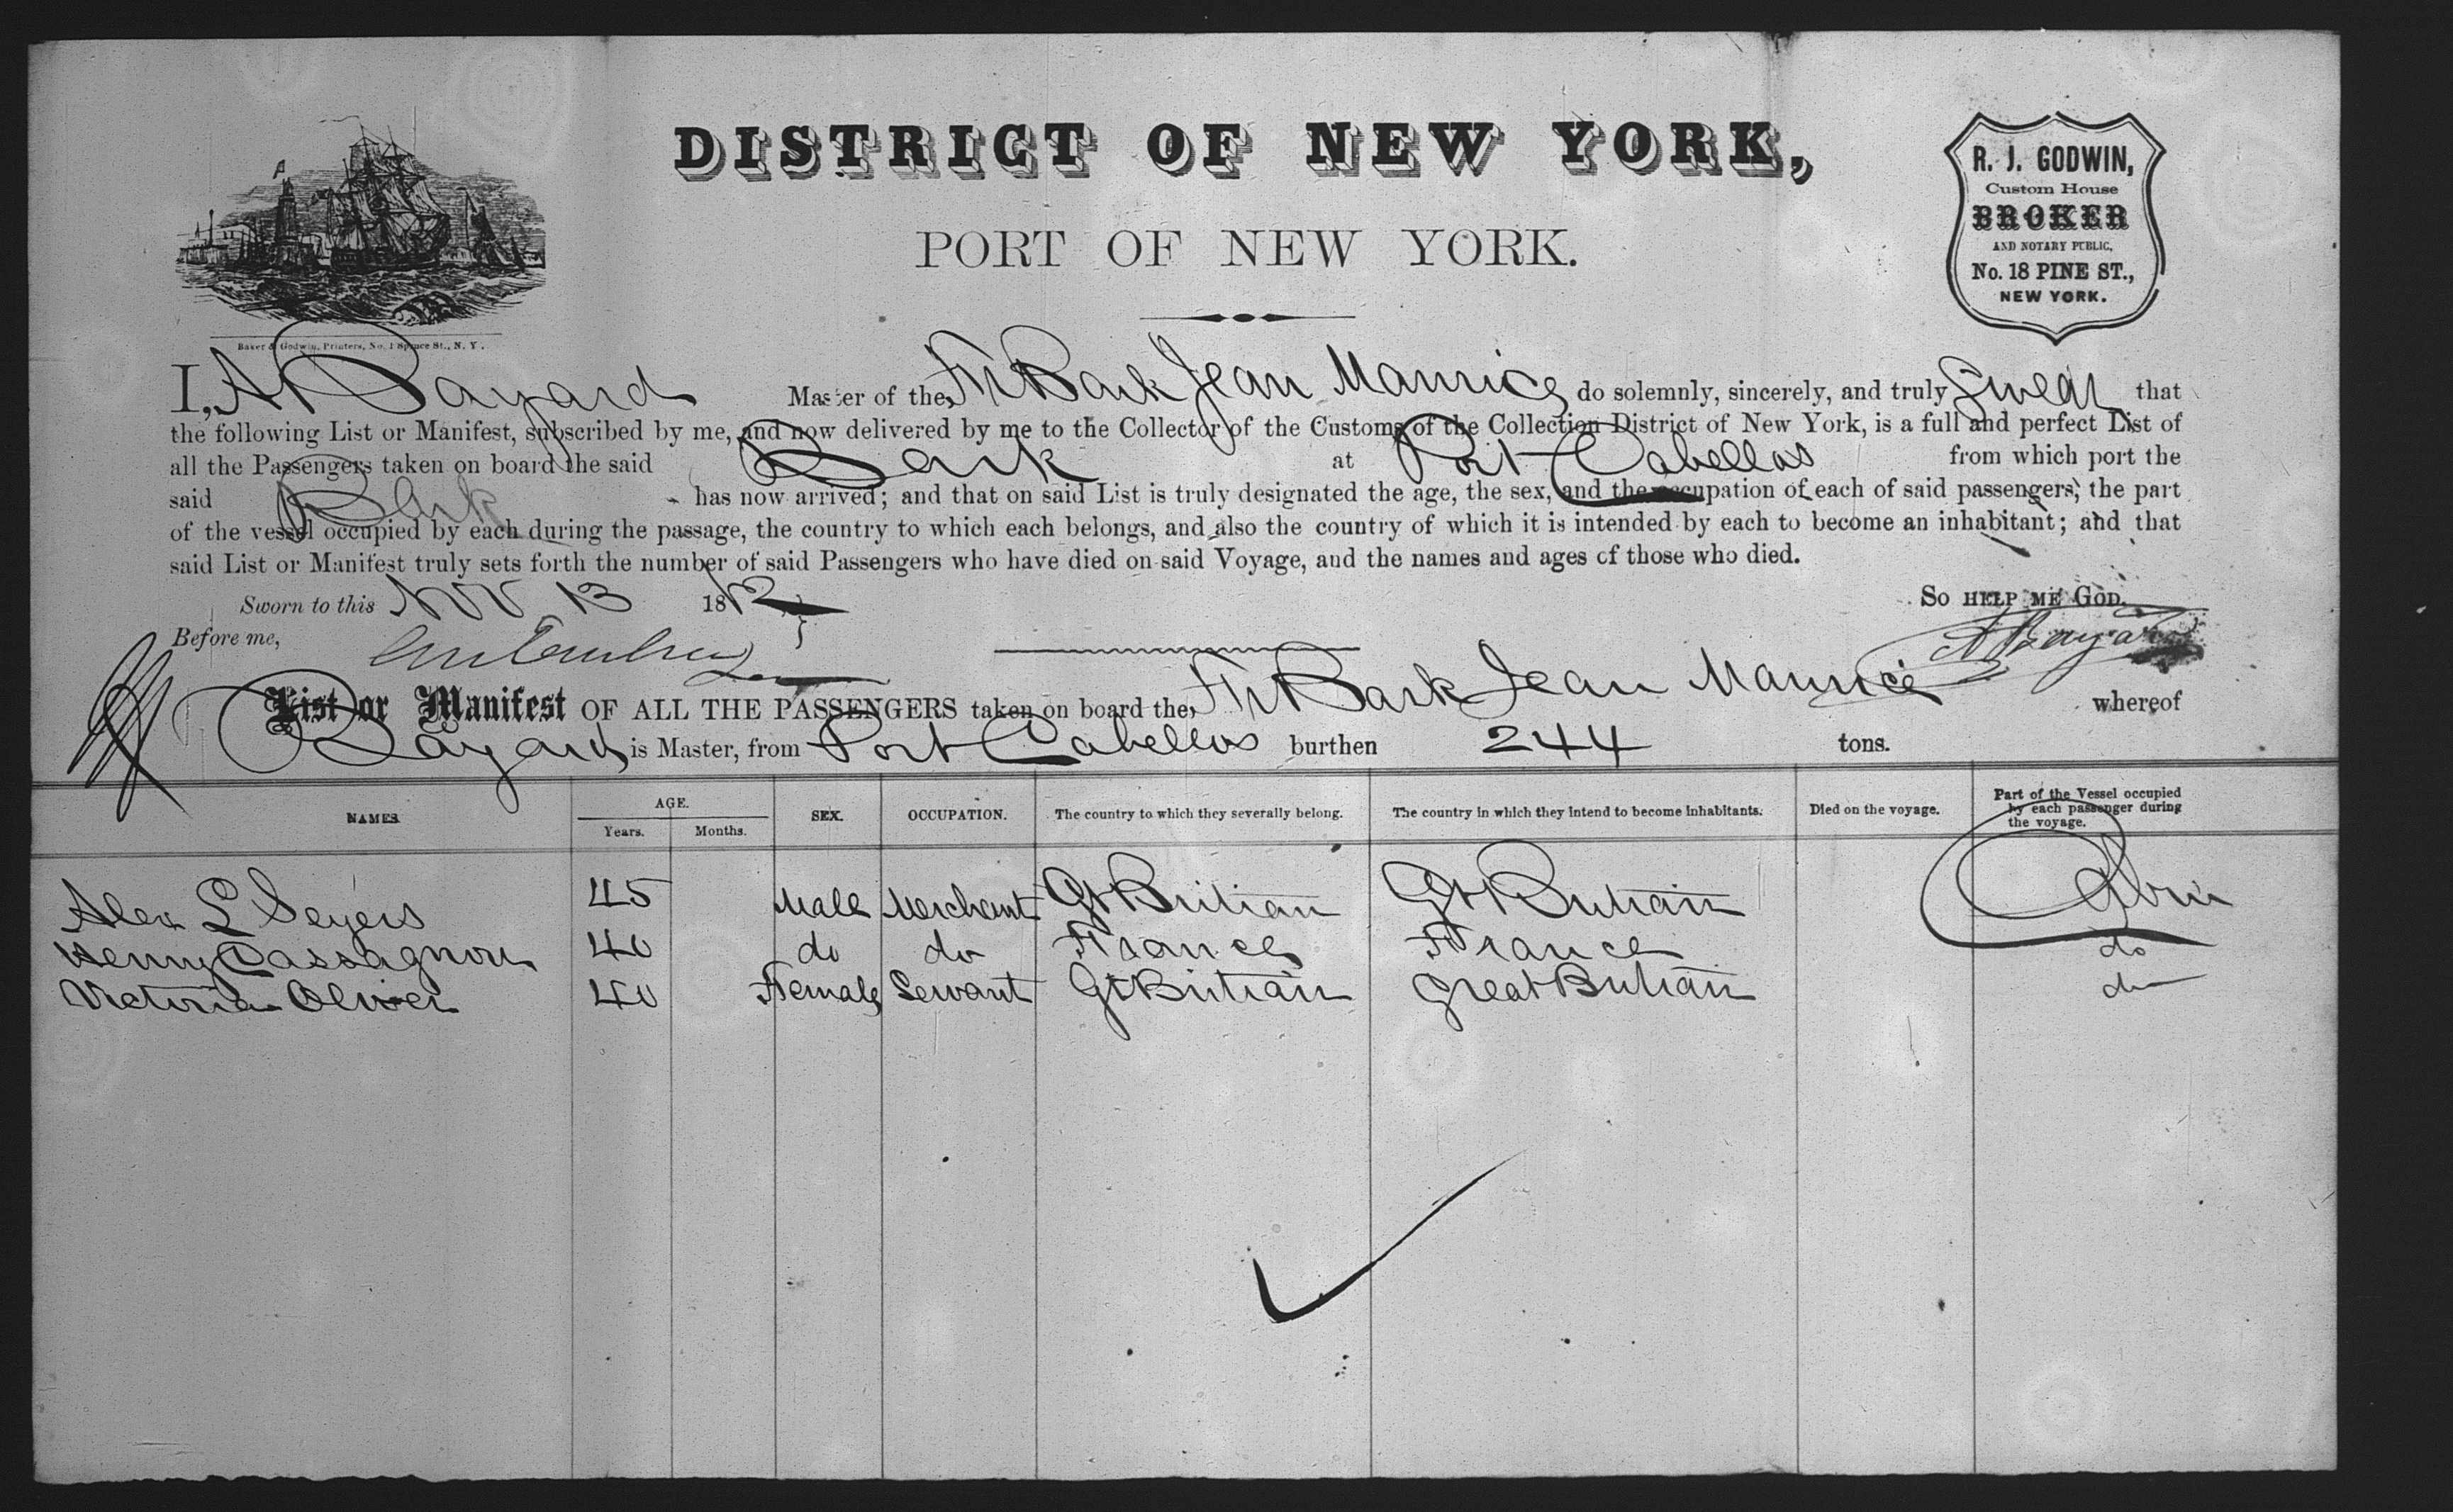 DISTRICT OF NEW YORK,
PORT OF NEW YORK.
R. J. GODWIN,
Custom House
BROKER
AND NOTARY PUBLIC,
No. 18 PINE ST.,
NEW YORK.
Baker & Godwin, Printers, No. 1 Spruce St., N. Y.
I, A Bayard Master of the Fr Bark Jean Maurice do solemnly, sincerely, and truly Swear that
the following List or Manifest, subscribed by me, and now delivered by me to the Collector of the Customs of the Collection District of New York, is a full and perfect List of
all the Passengers taken on board the said Bark at Port Cabellos from which port the
said Bark has now arrived; and that on said List is truly designated the age, the sex, and the occupation of each of said passengers, the part
of the vessel occupied by each during the passage, the country to which each belongs, and also the country of which it is intended by each to become an inhabitant; and that
said List or Manifest truly sets forth the number of said Passengers who have died on said Voyage, and the names and ages of those who died.
Sworn to this Nov 13 18 So HELP ME GOD.
Before me, A Bayard
List or Manifest OF ALL THE PASSENGERS taken on board the Fr Bark Jean Maurice whereof
Bayard is Master, from Port Cabellos burthen 244 tons.
NAMES AGE. Years. Months. SEX. OCCUPATION. The country to which they severally belong. The country in which they intend to become inhabitants. Died on the voyage. Part of the Vessel occupied by each passenger during the voyage.
Alex L Seyers 45 Male Merchant Gt Britian Gt Britain Cabin
Henry Cassagnou 40 do do France France do
Victoria Oliver 40 Female Servant Gt Britian Great Britian do